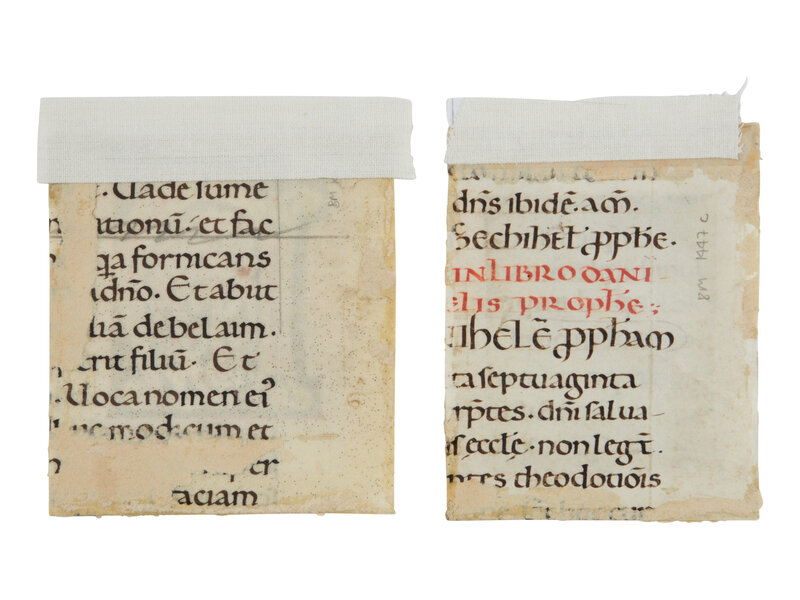 . Uade sume
ationū · et fac
q̄a fornicans
adn̄o. Et abut
liā debelaim.
erit filiū. Et
Uoca nomen ei᾽
modicum et
er
taciam
8M
dn̄s ibidē. am̄.
hechihel pph̄e.
IN LIBRO DANI
elis prophē:
Ihelē pph̄am
ta septuaginta
rp̄tes. dn̄i salua-
eccle · non legt̄.
ntes theodotiōis
8M 1447 c